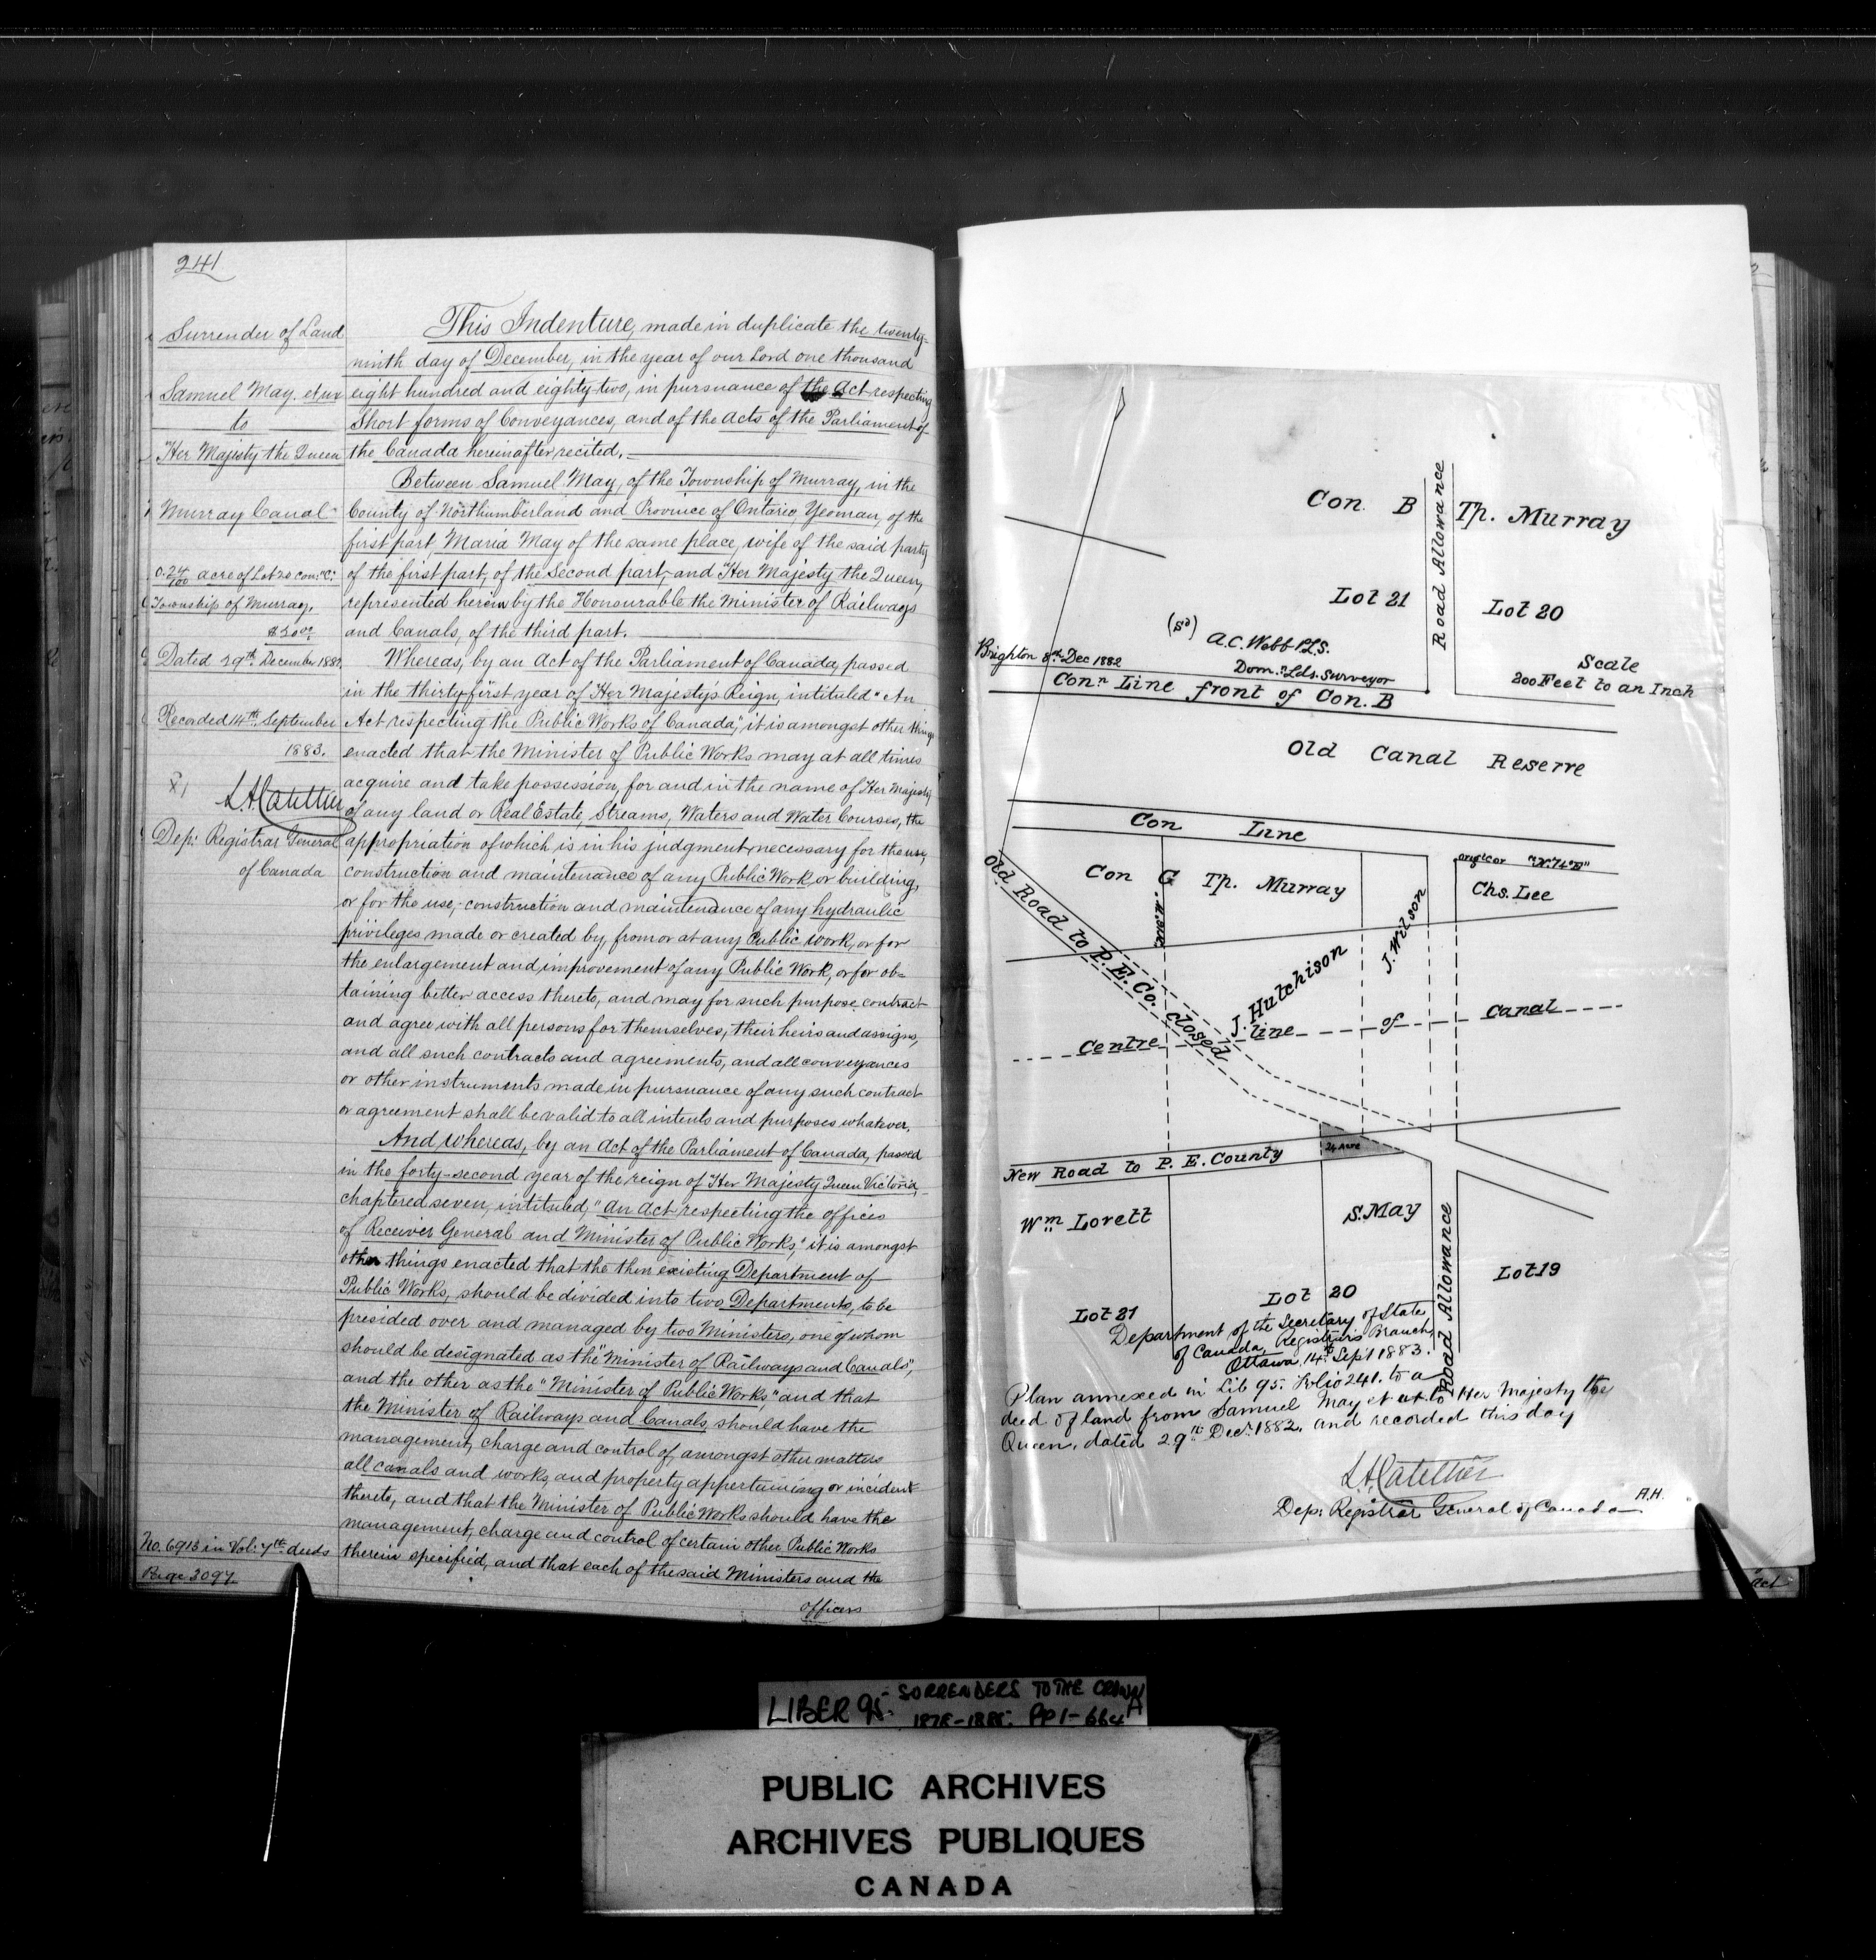 241
Surrender of Land
Samuel May et ux
to
Her Majesty the Queen
Murray Canal
0.24/100 acre of Lot 20 con: "C".
Township of Murray.
Dated 29th December 1882.
Recorded 14th September
1883.
Dep: Registrar General
of Canada
No. 6913 in Vol: 7th deeds
Page 3097.
This Indenture, made in duplicate the twenty-
ninth day of December, in the year of our Lord one thousand
eight hundred and eighty two, in pursuance of the Act respecting
Short forms of Conveyances, and of the Acts of the Parliament of
the Canada hereinafter recited.
Between Samuel May, of the Township of Murray, in the
County of Northumberland and Province of Ontario, Yeoman, of the
first part, Maria May of the same place, wife of the said party
of the first part, of the second part, and Her Majesty the Queen,
represented herein by the Honourable the Minister of Railways
and Canals, of the third part.
Whereas, by an Act of the Parliament of Canada, passed
in the thirty-first year of Her Majesty's Reign, intituled "An
Act respecting the Public Works of Canada," it is amongst other things
enacted that the Minister of Public Works may at all times
acquire and take possession, for and in the name of Her Majesty
of any land or Real Estate, Streams, Waters and Water Courses, the
appropriation of which is in his judgment necessary for the use,
construction and maintenance of any Public Work, or building,
or for the use, construction and maintenance of any hydraulic
privileges made or created by, from or at any Public work, or for
the enlargement and improvement of any Public Work, or for ob=
taining better access thereto, and may for such purpose contract
and agree with all persons for themselves, their heirs and assigns,
and all such contracts and agreements, and all conveyances
or other instruments made in pursuance of any such contract
or agreement shall be valid to all intents and purposes whatever.
And, whereas, by an Act of the Parliament of Canada, passed
in the forty-second year of the reign of Her Majesty Queen Victoria,
chaptered seven, intituled, "An Act respecting the offices
of Receiver General and Minister of Public Works," it is amongst
other things enacted that the then existing Department of
Public Works, should be divided into two Departments, to be
presided over and managed by two Ministers, one of whom
should be designated as the "Minister of Railways and Canals",
and the other as the "Minister of Public Works," and that
the Minister of Railways and Canals, should have the
management, charge and control of, amongst other matters
all canals and works, and property appertaining or incident
thereto, and that the Minister of Public Works should have the
management, charge and control of certain other Public Works
therein specified, and that each of the said Ministers and the
officers
Con. B Tp. Murray
Road Allowance
Lot 21
Lot 20
(Sd) A.C. Webb P.L.S.
Brighton 8th Dec 1882
Domn. Lds. Surveyor
Scale
200 Feet to an Inch
Conn Line front of Con. B
Old Canal Reserve
Con Line
Con C Tp. Murray
Orig'l Cor "N.74°E"
Chs. Lee
Old Road to P.E. Co. closed
J. Hutchison
J. Wilson
Centre line of Canal
24 Acre
New Road to P. E. County
Wm Lovett
S. May
Road Allowance
Lot 19
Lot 20
Lot 21
Department of the Secretary of State
of Canada, Registrar's Branch,
Ottawa, 14th Sept 1883.
Plan annexed in Lib 95. Folio 241. to a
deed of land from Samuel May et ux. to Her Majesty the
Queen, dated 29th Decr. 1882, and recorded this day
Dep: Registrar General of Canada
A.H.
act
LIBER 95. SORRENDERS TO THE CROWN
PP 1-664
PUBLIC ARCHIVES
ARCHIVES PUBLIQUES
CANADA